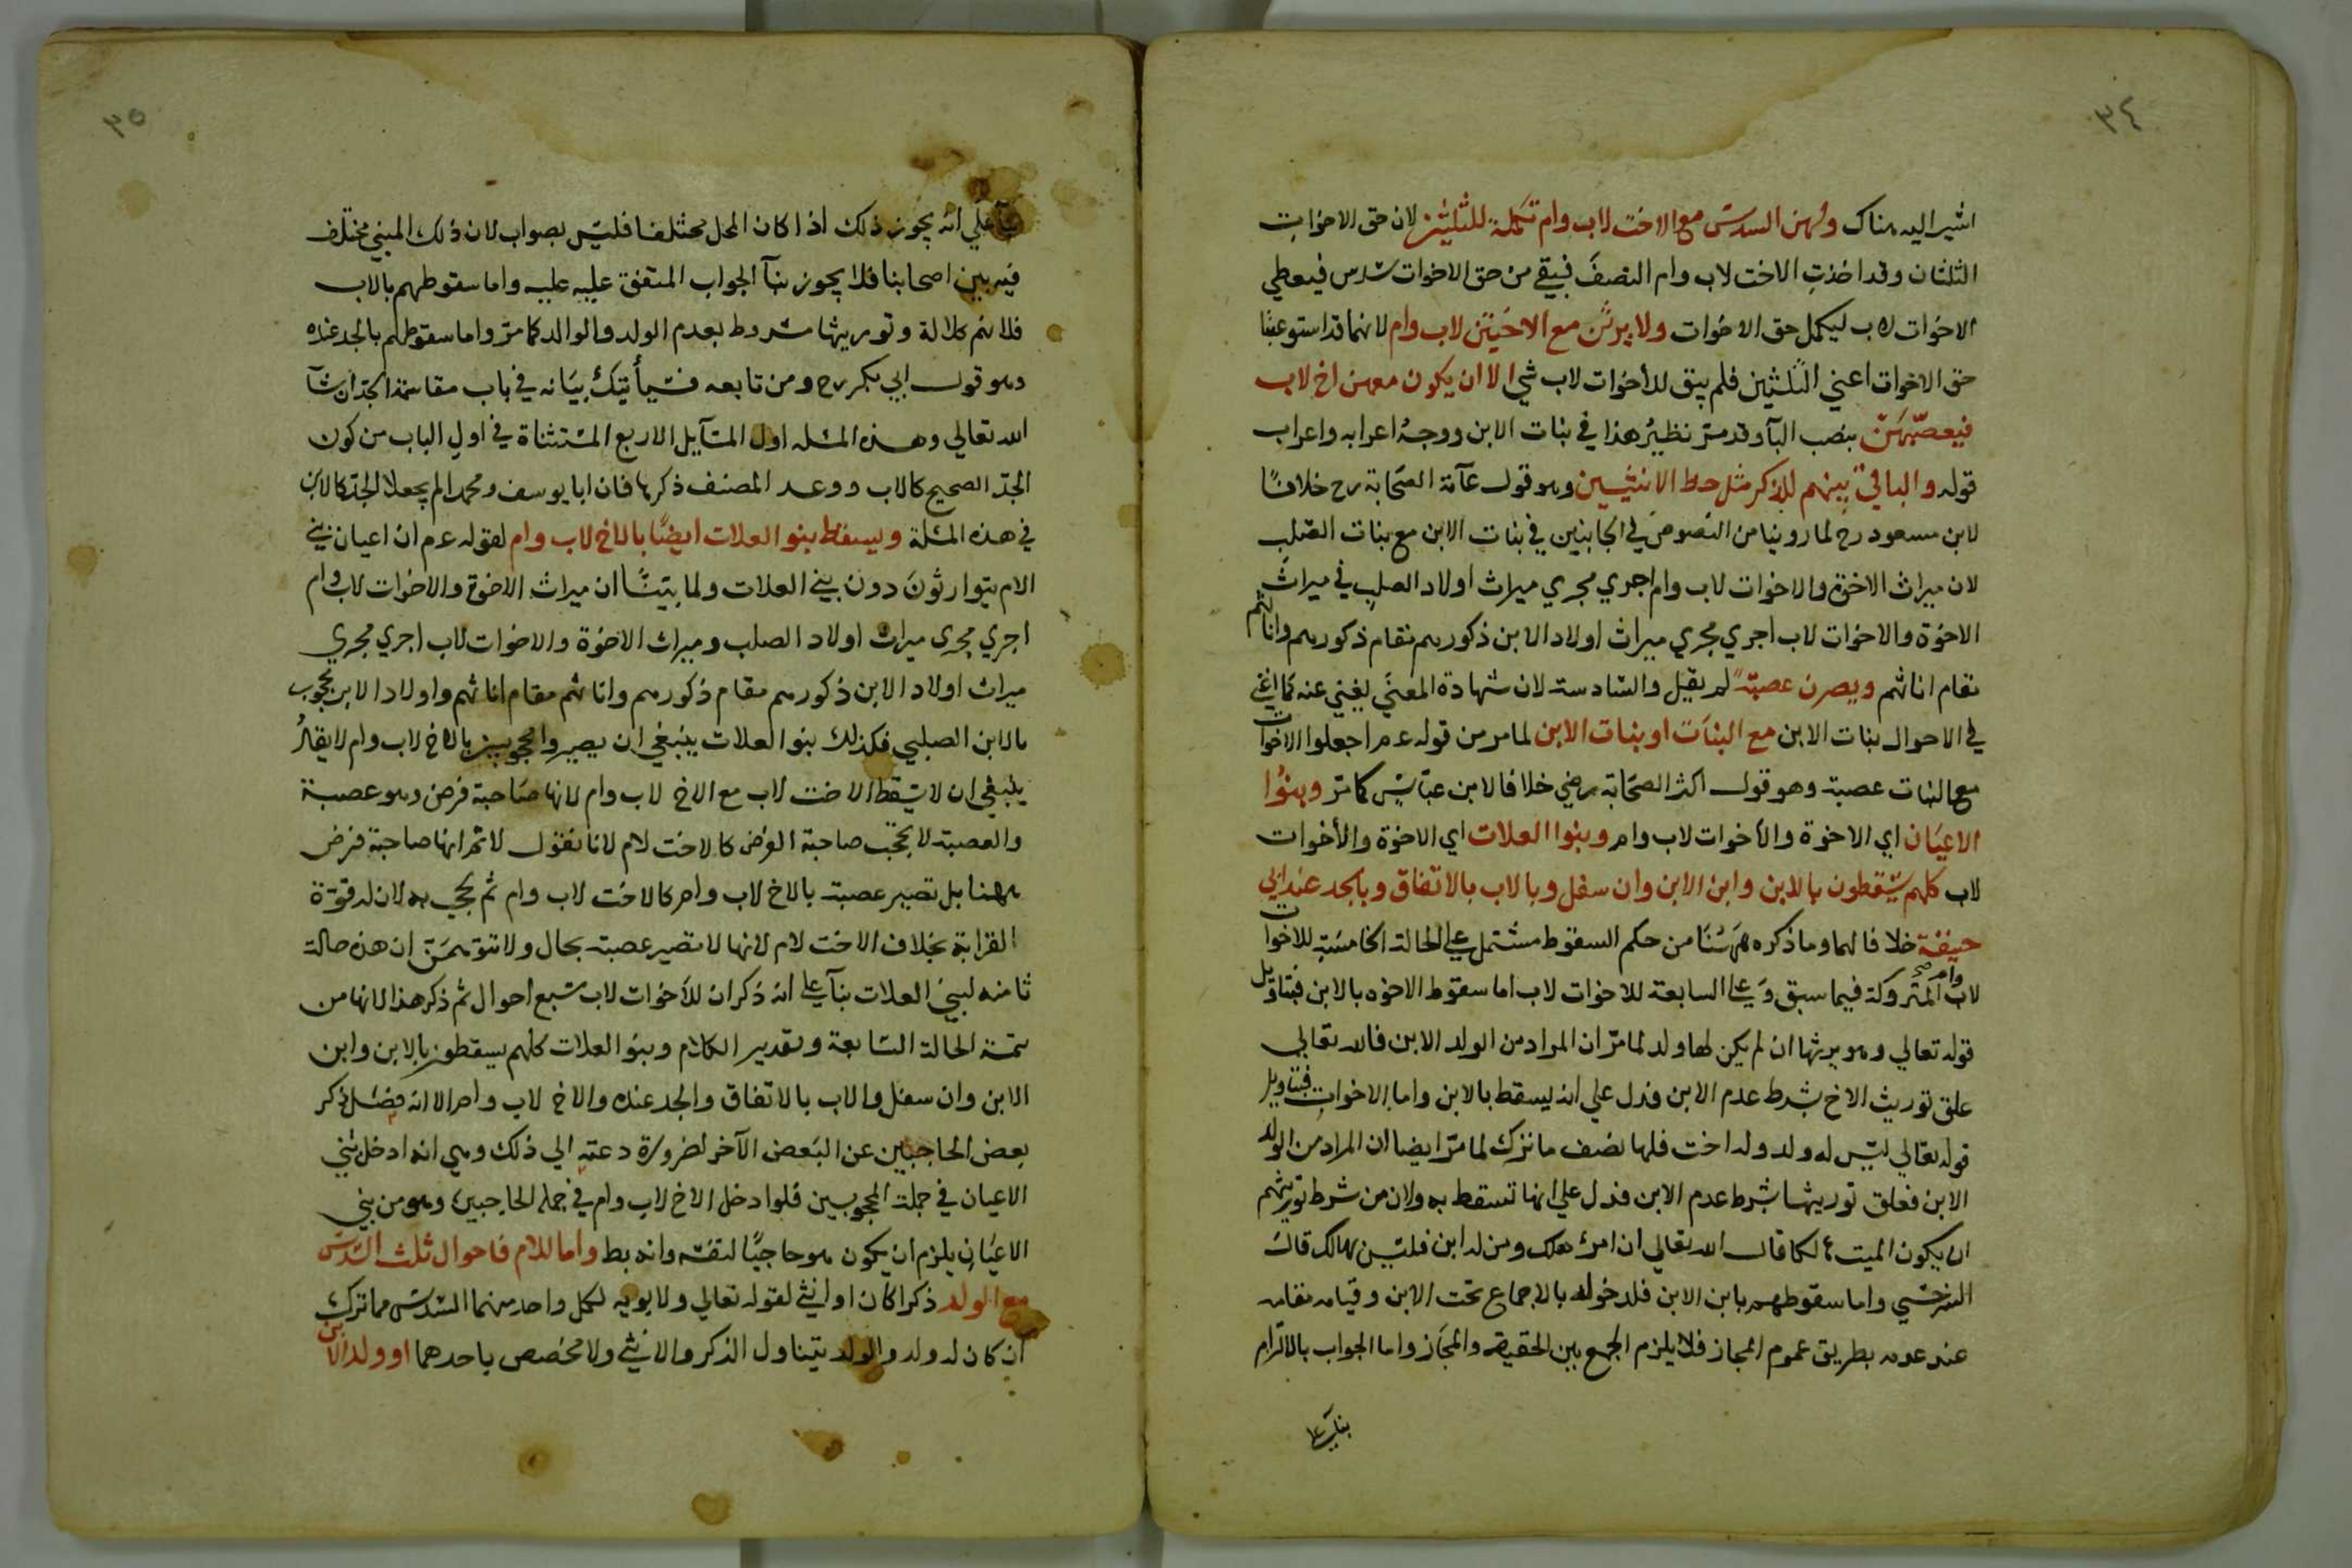 ٣٤
اشير اليه هناك ولهن السدس مع الاخت لاب وام تكملة للثلثين لان حق الاخوات
الثلثان وقد اخذت الاخت لاب وام النصف فبقي من حق الاخوات سدس فيعطي
الاخوات لاب ليكمل حق الاخوات ولا يرثن مع الاختين لاب وام لانهما قد استوعبتا
حق الاخوات اعني الثلثين فلم يبق للأخوات لاب شي الا ان يكون معهن اخ لاب
فيعصبهن بنصب البآ وقد مر نظير هذا في بنات الابن ووجه اعرابه واعراب
قوله والباقي بينهم للذكر مثل حظ الانثيين وهو قول عآمة الصحابة رح خلافا
لابن مسعود رح لما روينا من النصوص في الجانبين في بنات الابن مع بنات الصلب
لان ميراث الاخوة والاخوات لاب وام اجري مجري ميراث اولاد الصلب في ميراث
الاخوة والاخوات لاب اجري مجري ميراث اولاد الابن ذكورهم مقام ذكورهم واناثهم
مقام اناثهم ويصرن عصبة لم يقل والسادسة لان شهادة المعني يغني عنه كما اغني
في الاحوال بنات الابن مع البنات او بنات الابن لما مر من قوله عم اجعلوا الاخوات
مع البنات عصبة وهو قول اكثر الصحابة رضي خلافا لابن عباس كما مر وبنوا
الاعيان اي الاخوة والأخوات لاب وام وبنوا العلات اي الاخوة والأخوات
لاب كلهم يسقطون بالابن وابن الابن وان سفل وبالاب بالاتفاق وبالجد عند ابي
حنيفة خلافا لهما وما ذكره ههنا من حكم السقوط مشتمل علي الحالة الخامسة للاخوات
لاب وام صح المتروكة فيما سبق وعلي السابعة للاخوات لاب اما سقوط الاخوه بالابن فبتاويل
قوله تعالي وهو يرثها ان لم يكن لها ولد لما مر ان المراد من الولد الابن فالله تعالي
علق توريث الاخ بشرط عدم الابن فدل علي انه يسقط بالابن واما الاخوات فبتاويل
قوله تعالي ليس له ولد وله اخت فلها نصف ما ترك لما مر ايضا ان المراد من الولد
الابن فعلق توريثها بشرط عدم الابن فدل علي انها تسقط به ولان من شرط توريثهم
ان يكون الميت كما قال الله تعالي ان امرؤ هلك ومن له ابن فليس بهالك قال
السرخسي واما سقوطهم بابن الابن فلدخوله بالاجماع تحت الابن وقيامه مقامه
عند عدمه بطريق عموم المجاز فلا يلزم الجمع بين الحقيقة والمجاز واما الجواب بالالتزام
بنآ علي
٣٥
بنآ علي انه يجوز ذلك اذا كان المحل مختلفا فليس بصواب لان ذلك المبني مختلف
فيه بين اصحابنا فلا يجوز بنآ الجواب المتفق عليه عليه واما سقوطهم بالاب
فلانهم كلالة وتوريثها مشروط بعدم الولد والوالد كما مر واما سقوطهم بالجد عنده
وهو قول ابي بكر رح ومن تابعه فسيأتيك بيانه في باب مقاسمة الجد ان شآ
الله تعالي وهذه المسئله اول المسآيل الاربع المستثناة في اول الباب من كون
الجد الصحيح كالاب ووعد المصنف ذكرها فان ابا يوسف ومحمدا لم يجعلا الجد كالابن
في هذه المسئلة ويسقط بنو العلات ايضا بالاخ لاب وام لقوله عم ان اعيان بني
الام يتوارثون دون بني العلات ولما بيننا ان ميراث الاخوة والاخوات لاب وام
اجري مجري ميراث اولاد الصلب وميراث الاخوة والاخوات لاب اجري مجري
ميراث اولاد الابن ذكورهم مقام ذكورهم واناثهم مقام اناثهم واولاد الابن محجوب
بالابن الصلبي فكذلك بنوا العلات ينبغي ان يصيروا محجوبين بالاخ لاب وام لا يقال
ينبغي ان لا يسقط الاخت لاب مع الاخ لاب وام لانها صاحبة فرض وهو عصبة
والعصبة لا يحجب صاحبة الفرض كالاخت لام لانا نقول لا ثم انها صاحبة فرض
ههنا بل تصير عصبة بالاخ لاب وام كالاخت لاب وام ثم يحجب به لان له قوة
القرابة بخلاف الاخت لام لانها لا تصير عصبة بحال ولا تتوهمن ان هذه حالة
ثامنه لبني العلات بنآ علي انه ذكر ان للأخوات لاب سبع احوال ثم ذكر هذا لانها من
تتمة الحالة السابعة وتقدير الكلام وبنو العلات كلهم يسقطون بالابن وابن
الابن وان سفل والاب بالاتفاق والجد عنده والاخ لاب وام الا انه فصل ذكر
بعض الحاجبين عن البعض الآخر لضرورة دعته الي ذلك وهي انه ادخل بني
الاعيان في جملة المحجوبين فلو ادخل الاخ لاب وام في جملة الحاجبين وهو من بني
الاعيان يلزم ان يكون هو حاجبا لنفسه وانه بط واما للام فاحوال ثلث السدس
مع الولد ذكرا كان او انثي لقوله تعالي ولابويه لكل واحد منهما السدس مما ترك
ان كان له ولد والولد يتناول الذكر والانثي ولا مخصص باحدهما او ولد الابن